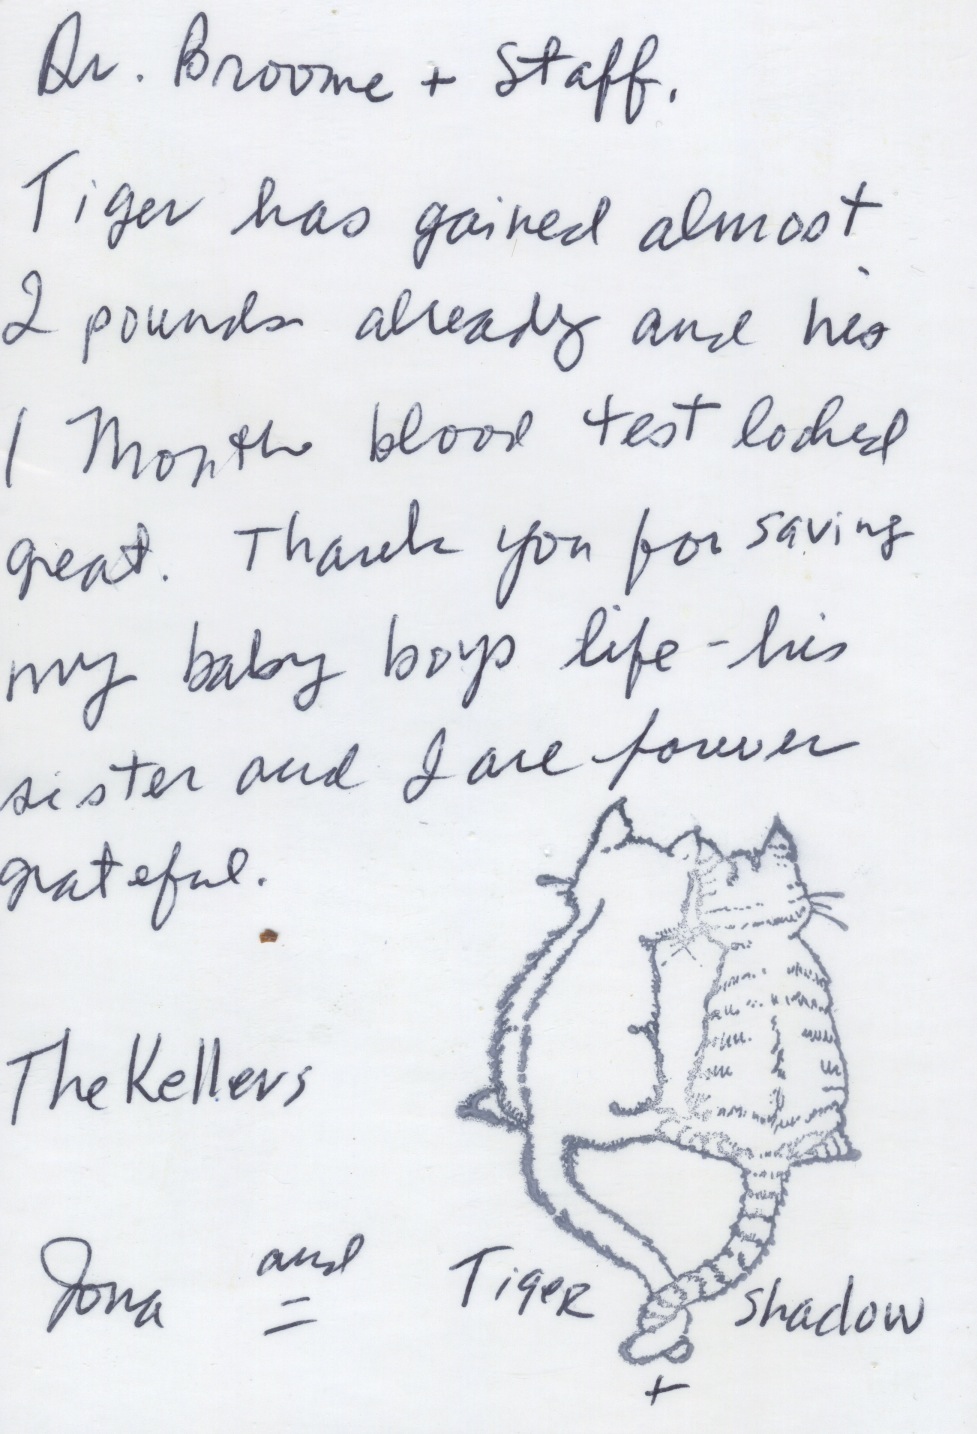 Dr. Broome + Staff.
Tiger has gained almost
2 pounds already and his
1 Month blood test looked
great. Thank you for saving
my baby boys life - his
sister and I are forever
grateful.
The Kellers
Jona and Tiger + Shadow